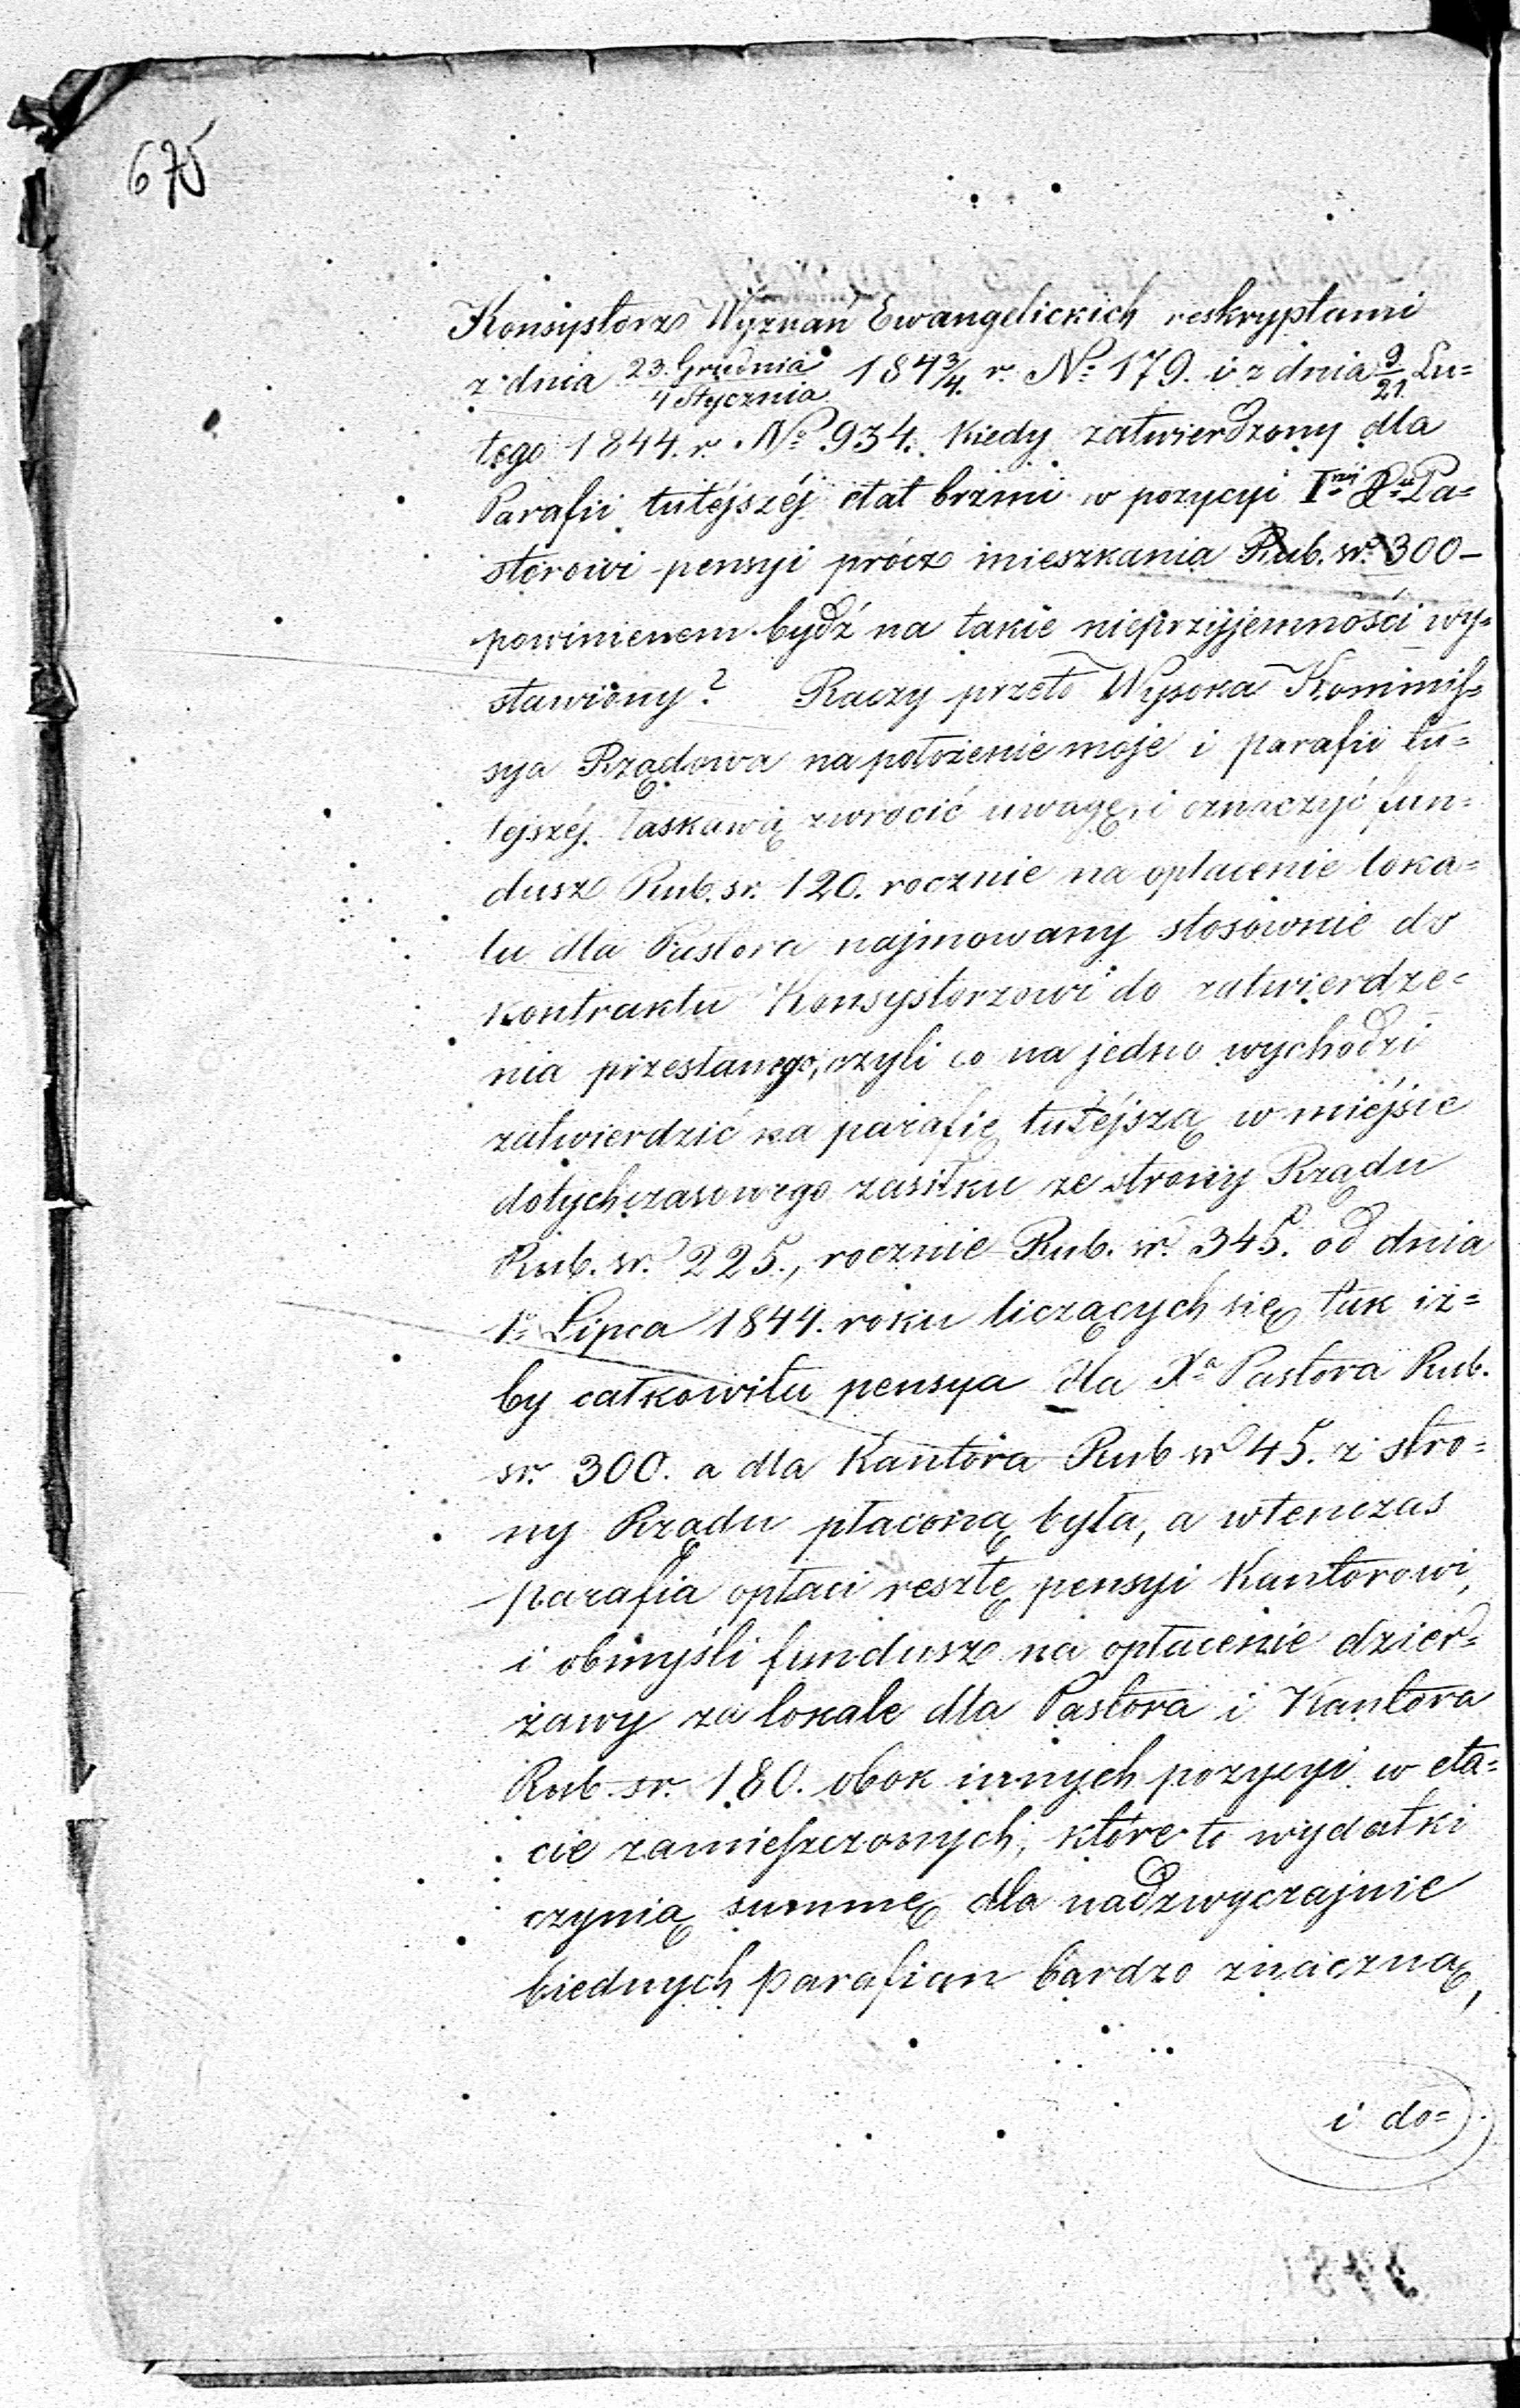 675
Konsystorz Wyznań Ewangelickich reskryptami
z dnia 23 Grudnia/4 Stycznia 1843/4. r. No 179. i z dnia 9/21 Lu=
tego 1844. r. No 934. kiedy zatwierdzony dla
Parafii tutéjszéj etat brzmi w pozycyi Iszéj Pa=
storowi pensyi prócz mieszkania Rub. sr. 300 –
powinienem bydź na takie nieprzyjemności wy=
stawiony? Raczy przeto Wysoka Kommis=
sya Rządowa na położenie moje i parafii tu=
tejszéj łaskawą zwrócić uwagę, i oznaczyć fun=
dusz Rub. sr. 120. rocznie na opłacenie loka=
lu dla Pastora najmowany stosownie do
kontraktu Konsystorzowi do zatwierdze=
nia przesłanego, czyli co na jedno wychodzi
zatwierdzić na parafię tutéjszą w miéjsce
dotychczasowego zasiłku ze strony Rządu
Rub. sr. 225., rocznie Rub. sr. 345. od dnia
1o Lipca 1844. roku liczących się, tak iż=
by całkowita pensya dla Xa Pastora Rub.
sr. 300. a dla Kantora Rub sr 45. z stro=
ny Rządu płaconą była, a wtenczas
parafia opłaci resztę pensyi Kantorowi,
i obmyśli fundusz na opłacenie dzier=
żawy za lokale dla Pastora i Kantora
Rub. sr. 180. obok innych pozycyi w eta=
cie zamieszczonych, które to wydatki
czynią summę dla nadzwyczajnie
biednych parafian bardzo znaczną,
i do=